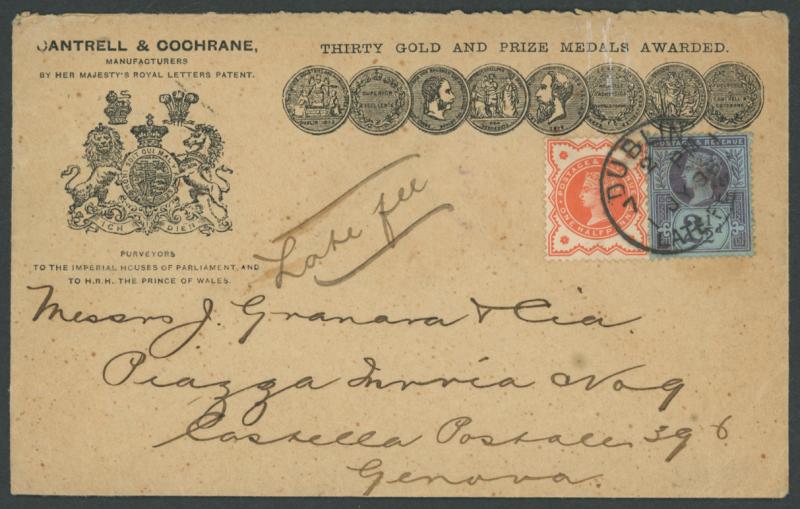 CANTRELL & COCHRANE,
MANUFACTURERS
BY HER MAJESTY'S ROYAL LETTERS PATENT.
THIRTY GOLD AND PRIZE MEDALS AWARDED.
SUPERIOR
EXCELLENCE
ICH DIEN
PURVEYORS
TO THE IMPERIAL HOUSES OF PARLIAMENT, AND
TO H.R.H. THE PRINCE OF WALES.
Late fee
POSTAGE &
ONE HALFPENNY
POSTAGE & REVENUE
2½d
DUBLIN
LATE FEE
Messrs J. Granara & Cia.
Piazza No 9
Postale 396
Genova.